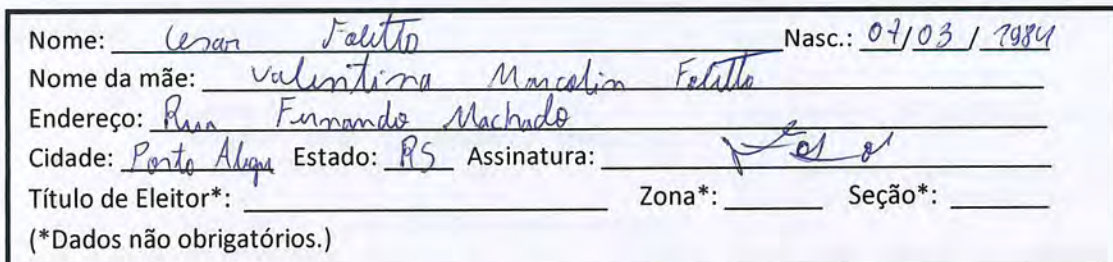 Nome: Cesar Faletto Nasc.: 07/03/1984
Nome da mãe: Valentina Marcolin Faletto
Endereço: Rua Fernando Machado
Cidade: Porto Alegre Estado: RS Assinatura:
Título de Eleitor*: Zona*: Seção*:
(*Dados não obrigatórios.)